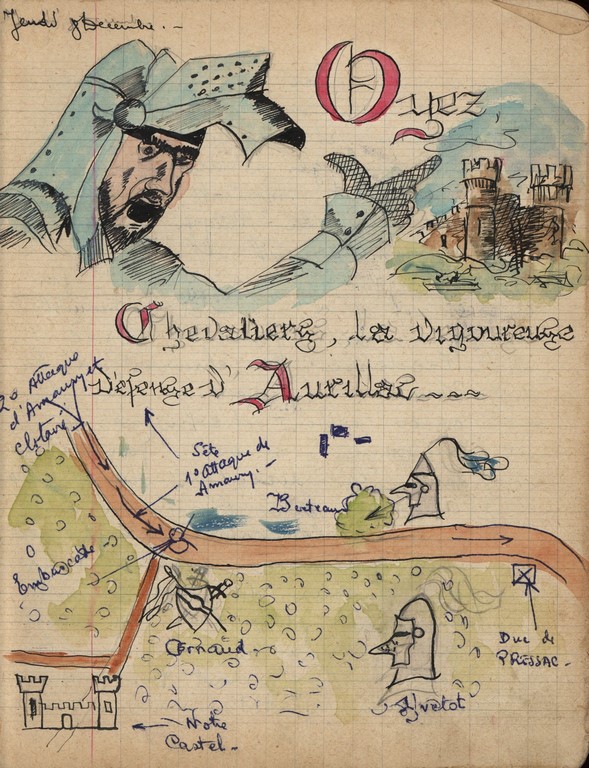 Jeudi 8 Decembre. -
Oyez,
Chevaliers, la vigoureuse
Défense d'Aurillac - - -
2o Attaque
d'Amaury et
Clotaire
1o attaque de
Amaury. -
Berteaux
Embuscade
Arnaud.
Yvetot
Duc de
PRESSAC -
Notre
Castel -